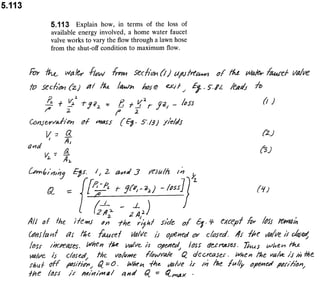 5.113
5.113 Explain how, in terms of the loss of
available energy involved, a home water faucet
valve works to vary the flow through a lawn hose
from the shut-off condition to maximum flow.
For the water flow from section (1) upstream of the water faucet valve
to section (2) at the lawn hose exit, Eq. 5.82 leads to
P₂/ρ + V₂²/2 + g z₂ = P₁/ρ + V₁²/2 + g z₁ - loss (1)
Conservation of mass (Eq. 5.13) yields
V₁ = Q/A₁ (2)
and
V₂ = Q/A₂ (3)
Combining Eqs. 1, 2 and 3 results in
Q = { [ (P₁-P₂)/ρ + g(z₁-z₂) - loss ] / ( 1/2A₂² - 1/2A₁² ) }^½ (4)
All of the items on the right side of Eq. 4 except for loss remain
constant as the faucet valve is opened or closed. As the valve is closed,
loss increases. When the valve is opened, loss decreases. Thus when the
valve is closed, the volume flowrate Q decreases. When the valve is in the
shut off position, Q=0. When the valve is in the fully opened position,
the loss is minimal and Q = Qmax.